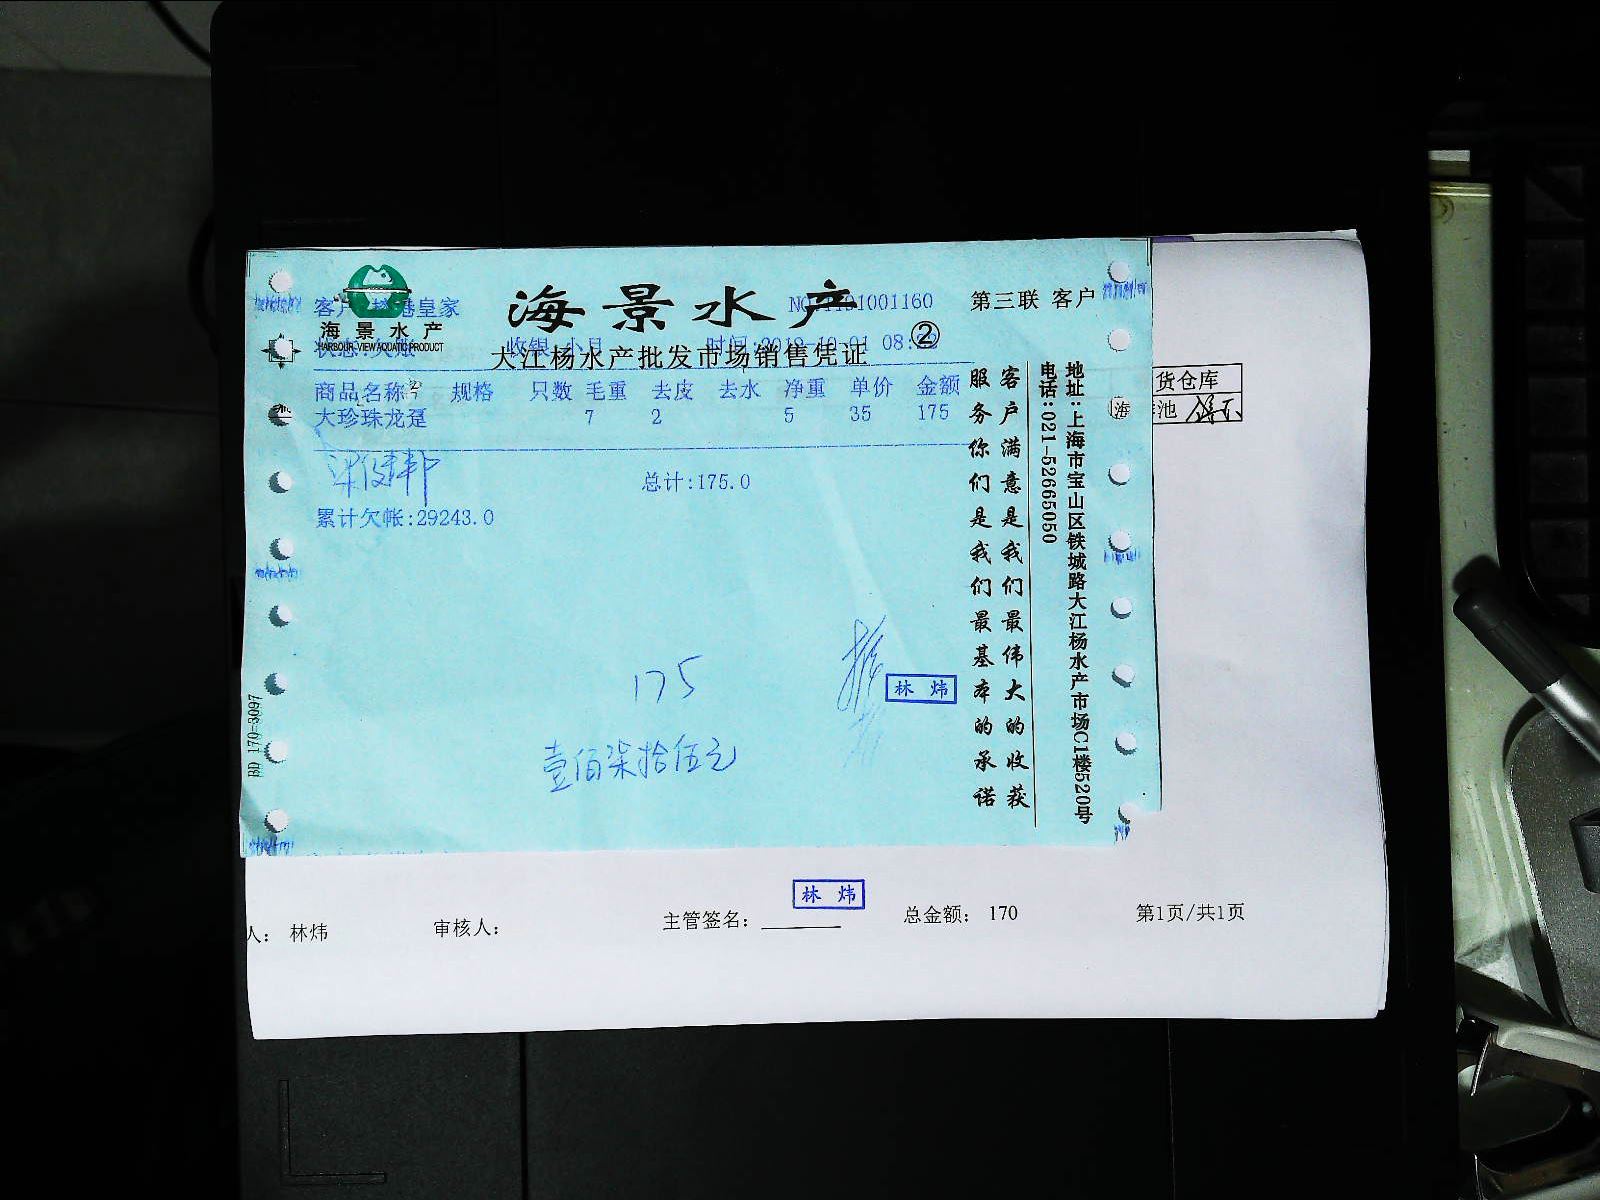 海景水产
HARBOUR-VIEW AQUATIC PRODUCT
海景水产
大江杨水产批发市场销售凭证
②
第三联 客户
客户 港皇家
1001160
状态:欠账
收银:小月
时间:2019-10-01 08:
商品名称 规格 只数 毛重 去皮 去水 净重 单价 金额
大珍珠龙趸 7 2 5 35 175
总计:175.0
累计欠帐:29243.0
175
林 炜
壹佰柒拾伍元
客户满意是我们最伟大的收获
服务你们是我们最基本的承诺
地址:上海市宝山区铁城路大江杨水产市场C1楼520号
电话:021-52665050
BD 170-3097
货仓库
海
池
林 炜
人: 林炜 审核人: 主管签名: 总金额: 170 第1页/共1页